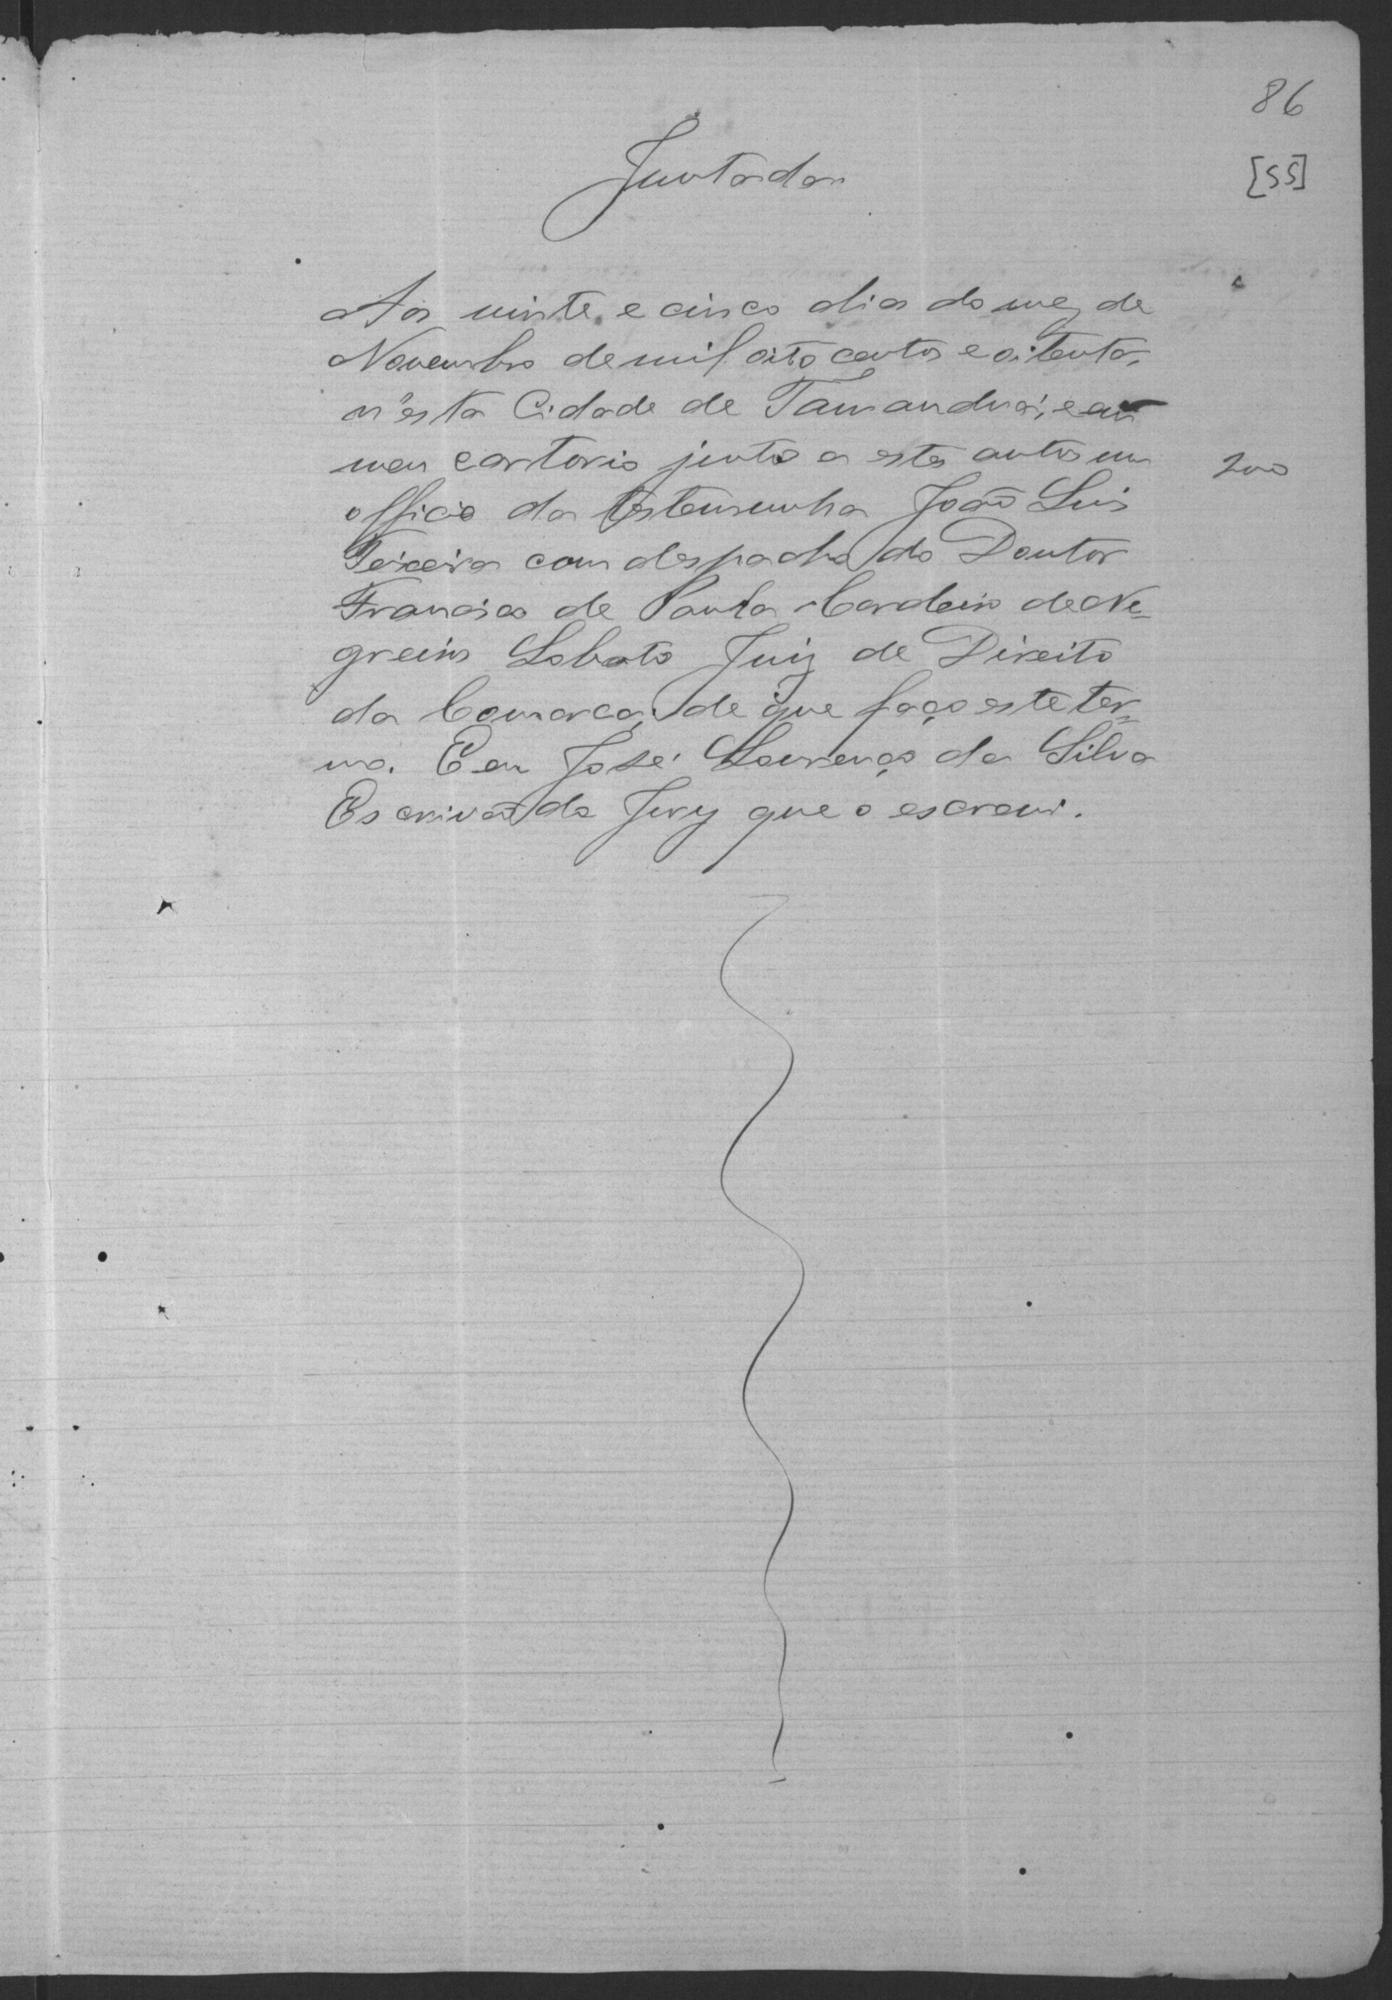 86
[55]
Juntada
Aos vinte e cinco dias do mez de
Novembro de mil oito centos e oitenta,
n'esta Cidade de Tamanduá, e em
meu cartorio junto a estes autos um
200
officio da testemunha João Luis
Teixeira com despacho do Doutor
Francisco de Paula Cordeiro de Ne-
greiros Lobato Juiz de Direito
da Comarca, de que faço este ter-
mo. Eu José Lourenço da Silva
Escrivão do Jury que o escrevi.